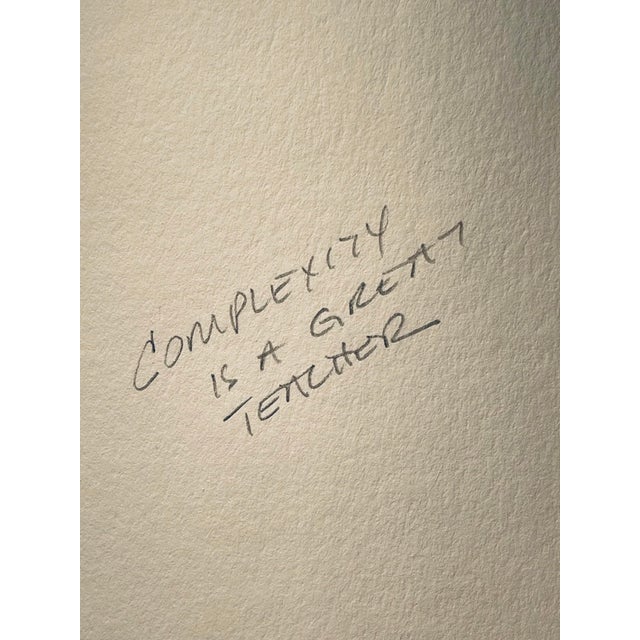 COMPLEXITY
IS A GREAT
TEACHER